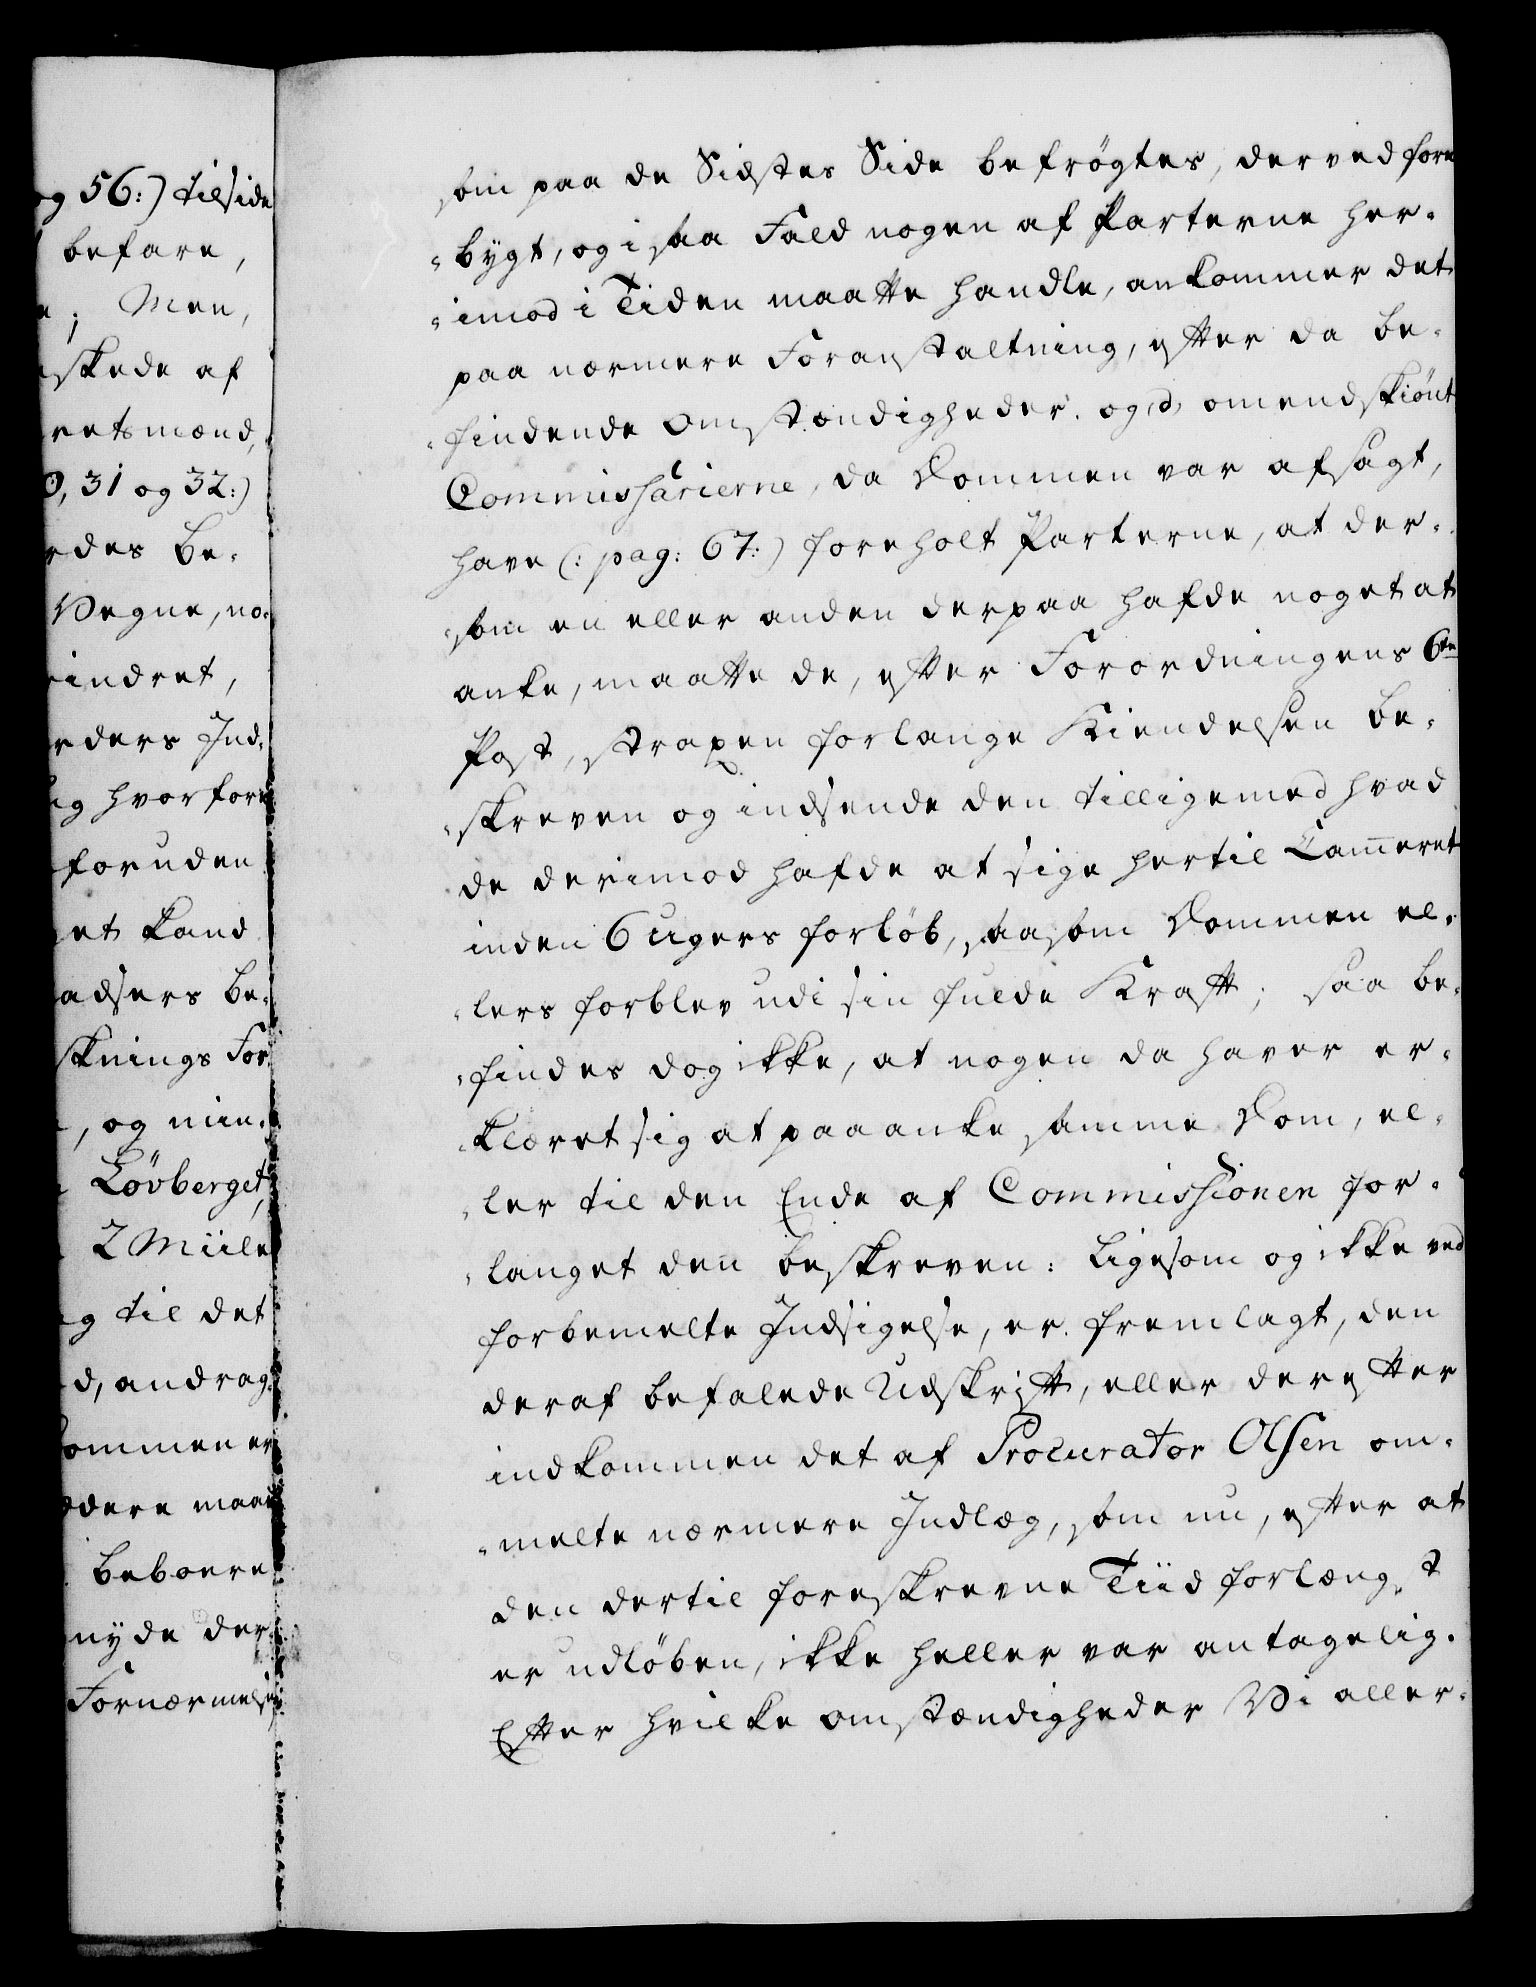 og 56:) tilside
befare,
; Men,
skede af
retsmænd,
0, 31 og 32:)
rdes be-
Vegne, no-
indret,
rders Ind-
ig hvorfore
foruden
et kand
adsers be-
sknings For
, og min-
Løvberget,
2 Miile
g til det
d, andrag-
ommen er
dere maae
beboere
nyde der
Fornærmelse
som paa de Sidstes Side befrögtes, derved fore
-bygt, og i saa Fald nogen af Parterne her-
-imod i Tiden maatte handle, ankommer det
paa nærmere Foranstaltning, efter da be-
-findende Omstændigheder. og d, omendskiönt
Commissarierne, da Dommen var afsagt,
have (: pag: 67:) foreholt Parterne, at der-
-som en eller anden derpaa hafde noget at
anke, maatte de, efter Forordningens 6te
Post, straxen forlange Kiendelsen be-
-skreven og indsende den tilligemed hvad
de derimod hafde at sige hertil Cam̅eret
inden 6 ugers forlöb, saasom Dommen el-
-lers forblev udi sin fulde Kraft; saa be-
-findes dog ikke, at nogen da haver er-
-klæret sig at paaanke samme Dom, el-
-ler til den Ende af Commissionen for-
-langet den beskreven: ligesom og ikke ved
forbemelte Indsigelse, er fremlagt, den
deraf befalede Udskrift, eller derefter
indkommen det af Procurator Olsen om-
-melte nærmere Indlæg, som nu, efter at
den dertil foreskrevne Tiid forlængst
er udlöben, ikke heller var antagelig.
Efter hvilke omstændigheder Vi aller-